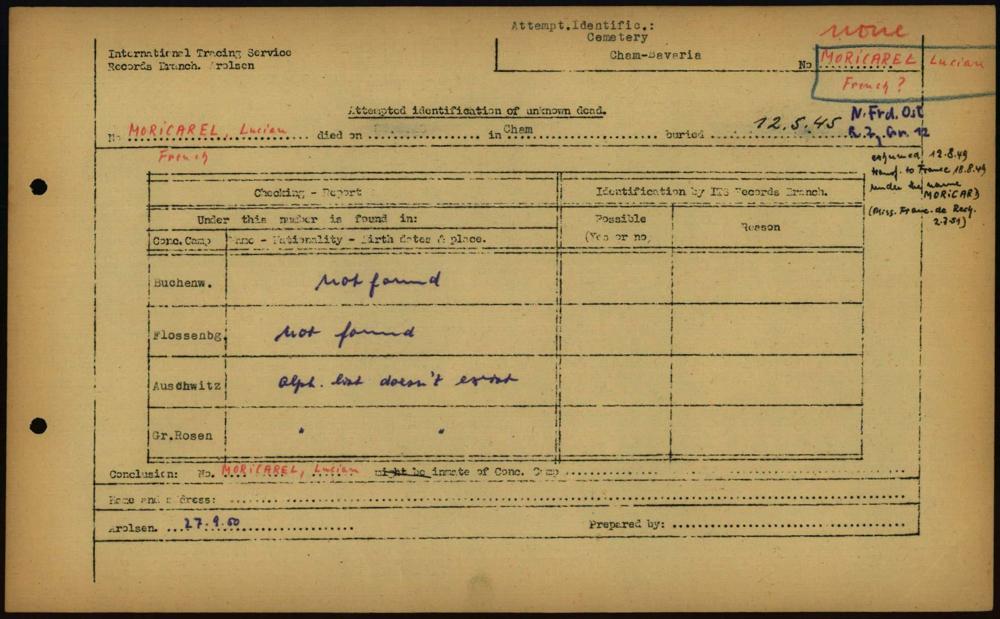 Attempt.Identific.:
Cemetery
Cham-Bavaria
none
No MORICAREL Lucian
French?
International Tracing Service
Records Branch. Arolsen
Attempted identification of unknown dead.
No MORICAREL, Lucian died on in Cham buried 12.5.45
French
N. Frd. Ost
R. 7, Gr. 12
exhumed 12.8.49
transf. to France 18.8.49
under the name
MORICARD
(Miss. Franc. de Rech.
2.7.51)
Checking - Report
Identification by ITS Records Branch.
Under this number is found in:
Possible
(Yes or no)
Reason
Conc.Camp
Name - Nationality - Birth dates & place.
Buchenw. not found
Flossenbg. not found
Auschwitz alph. list doesn't exist
Gr.Rosen " "
Conclusion: No. MORICAREL, Lucian might be inmate of Conc. Camp
Name and address:
Arolsen. 27.9.50
Prepared by: